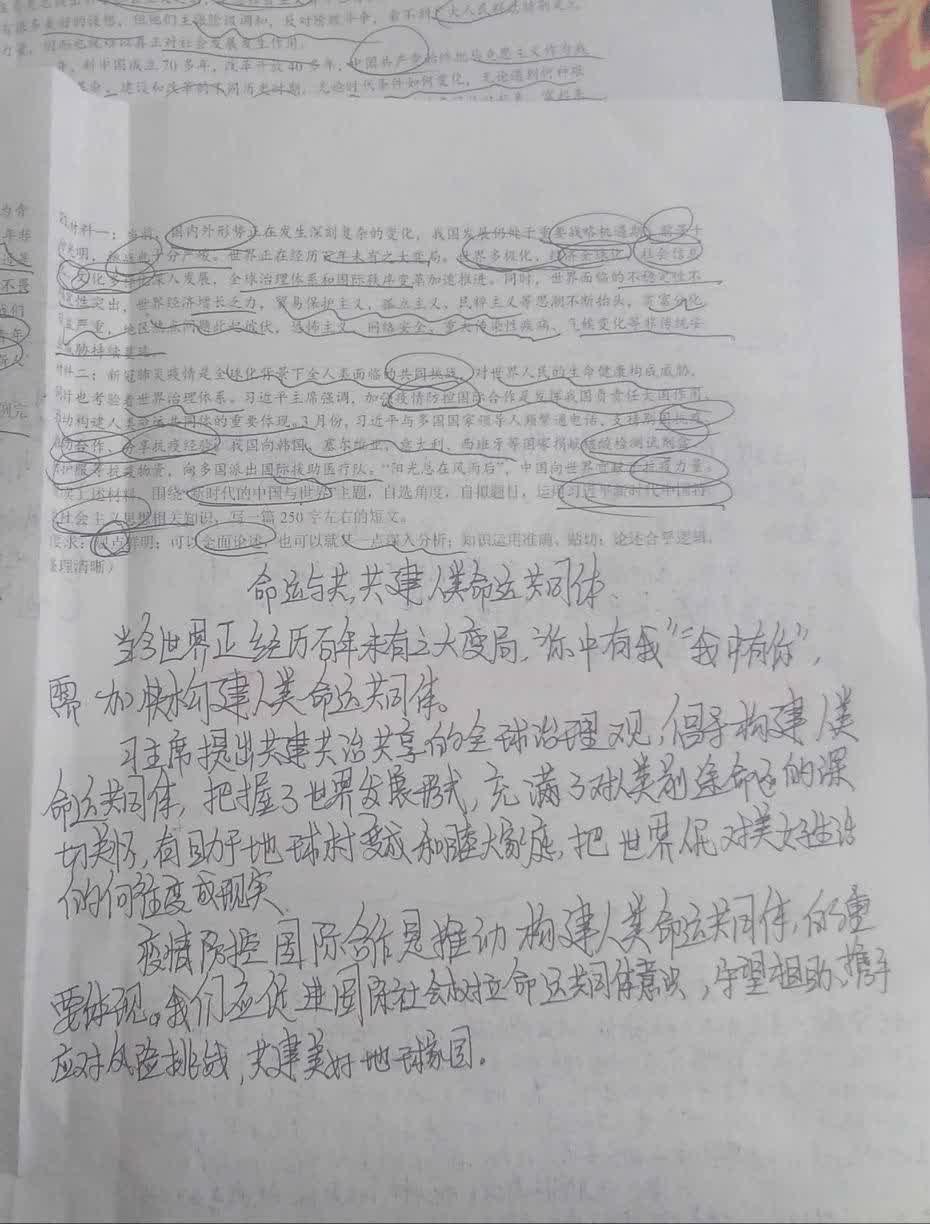 力量，因而也就难以真正对社会发展发生作用。
年，新中国成立70多年，改革开放40多年，中国共产党始终把马克思主义作为
革命、建设和改革的不同历史时期，无论时代条件如何变化，无论遇到何种艰
材料一：当前，国内外形势正在发生深刻复杂的变化，我国发展仍处于重要战略机遇期，前景十
分光明，挑战也十分严峻。世界正在经历百年未有之大变局。世界多极化、经济全球化、社会信息
化、文化多样化深入发展，全球治理体系和国际秩序变革加速推进。同时，世界面临的不稳定性不
确定性突出，世界经济增长乏力，贸易保护主义、孤立主义、民粹主义等思潮不断抬头，贫富分化
日益严重，地区热点问题此起彼伏，恐怖主义、网络安全、重大传染性疾病、气候变化等非传统安
全威胁持续蔓延。
材料二：新冠肺炎疫情是全球化背景下全人类面临的共同挑战，对世界人民的生命健康构成威胁，
同时也考验着世界治理体系。习近平主席强调，加强疫情防控国际合作是发挥我国负责任大国作用、
推动构建人类命运共同体的重要体现。3月份，习近平与多国国家领导人频繁通电话，支持
合作，分享抗疫经验。我国向韩国、塞尔维亚、意大利、西班牙等国家捐献核酸检测试剂盒、
防护服等抗疫物资，向多国派出国际援助医疗队。“阳光总在风雨后”，中国向世界贡献了抗疫力量。
上述材料，围绕“新时代的中国与世界”主题，自选角度，自拟题目，运用习近平新时代中国特
色社会主义思想相关知识，写一篇250字左右的短文。
要求：观点鲜明；可以全面论述，也可以就某一点深入分析；知识运用准确、贴切；论述合乎逻辑，
条理清晰）
命运与共，共建人类命运共同体
当今世界正经历百年未有之大变局，“你中有我”“我中有你”，
需加快构建人类命运共同体。
习主席提出共建共治共享的全球治理观，倡导构建人类
命运共同体，把握了世界发展形式，充满了对人类前途命运的深
切关怀，有助于地球村变成和睦大家庭，把世界人民对美好生活
的向往变成现实
疫情防控国际合作是推动构建人类命运共同体，的重
要体现。我们应促进国际社会树立命运共同体意识，守望相助、携手
应对风险挑战，共建美好地球家园。